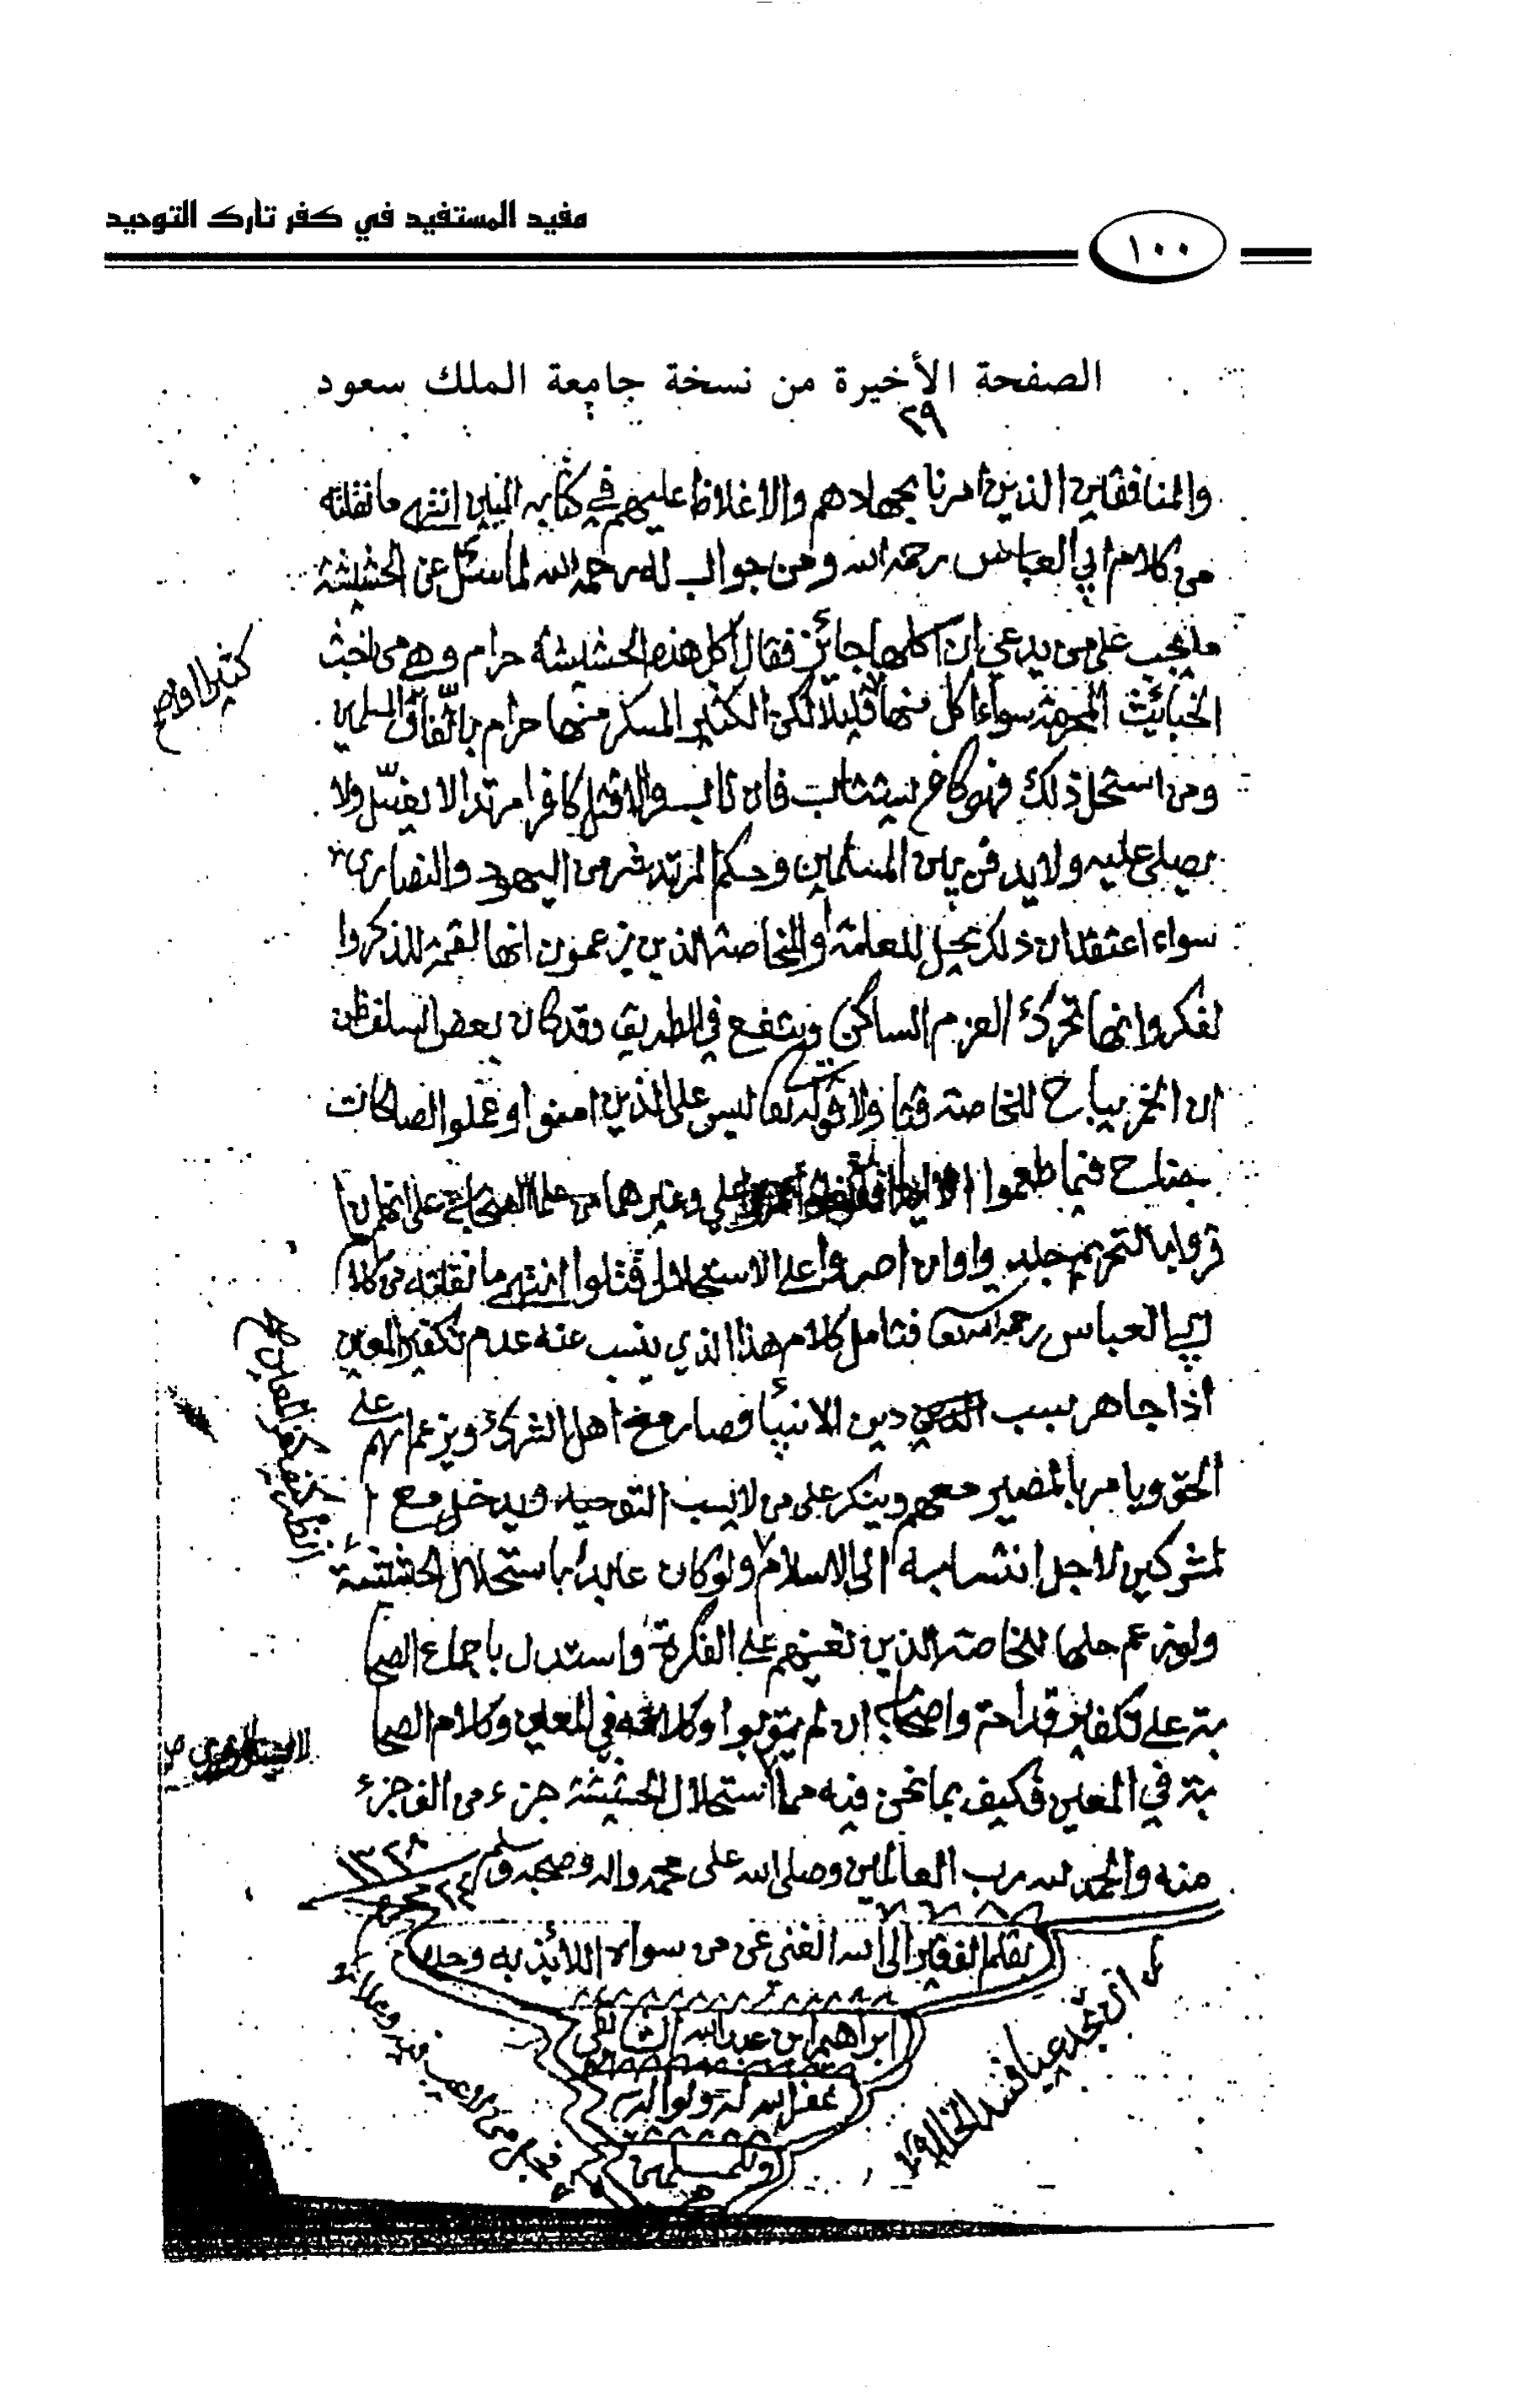 مفيد المستفيد في كفر تارك التوحيد
١٠٠
الصفحة الأخيرة من نسخة جامعة الملك سعود
٢٩
والمنافقين الذين امرنا بجهادهم والاغلاظ عليهم في كتابه المبين انتهى ما نقلته
من كلام ابي العباس رحمه الله ومن جواب له رحمه الله لما سئل عن الحشيشة
ما يجب على من يدعي ان اكلها جائز فقال اكل هذه الحشيشة حرام وهي من اخبث
الخبائث المحرمة سواء اكل منها قليلا لكن الكثير المسكر منها حرام باتفاق المسلمين
كثيرا وصح
ومن استحل ذلك فهو كافر يستتاب فان تاب والا قتل كافرا مرتدا لا يغسل ولا
يصلى عليه ولا يدفن بين المسلمين وحكم المرتد شر من اليهود والنصارى
سواء اعتقد ان ذلك يحل للعامة او للخاصة الذين يزعمون انها لقمة للذكر وا
لفكر وانها تحرك العزم الساكن وينفع في الطريق وقد كان بعض السلف ظن
ان الخمر يباح للخاصة متاولا قوله تعالى ليس على الذين امنوا وعملوا الصالحات
جناح فيما طعموا الاية علي وغيرهما من علماء الصحابة على انهم ان
قروا بالتحريم جلدوا وان اصروا على الاستحلال قتلوا انتهى ما نقلته من كلام
ابي العباس رحمه الله تعا فتامل كلام هذا الذي ينسب عنه عدم تكفير المعين
اذا جاهر بسب دين الانبيا وصار مع اهل الشرك ويزعم انهم على
الحق ويامر بالمصير معهم وينكر على من لا يسب التوحيد ويدخل مع ا
لمشركين لاجل انتسابه الى الاسلام ولو كان عابدا باستحلال الحشيشة
ولو زعم حلها للخاصة الذين تعينهم على الفكرة واستدل باجماع الصحا
بة على تكفير قدامة واصحابه ان لم يتوبوا وكلامه في المعين وكلام الصحا
بة في المعين فكيف بما نحن فيه مما استحلال الحشيشة جزء من الف جزء
منه والحمد لله رب العالمين وصلى الله على محمد واله وصحبه وسلم
١٣٣٨
بقلم الفقير الى الله الغني عن من سواه اللائذ به وحده
ابراهيم ابن عبد الله الشائقي
غفر الله له ولوالديه
وللمسلمين
ان تجد عيبا فسد الخللا